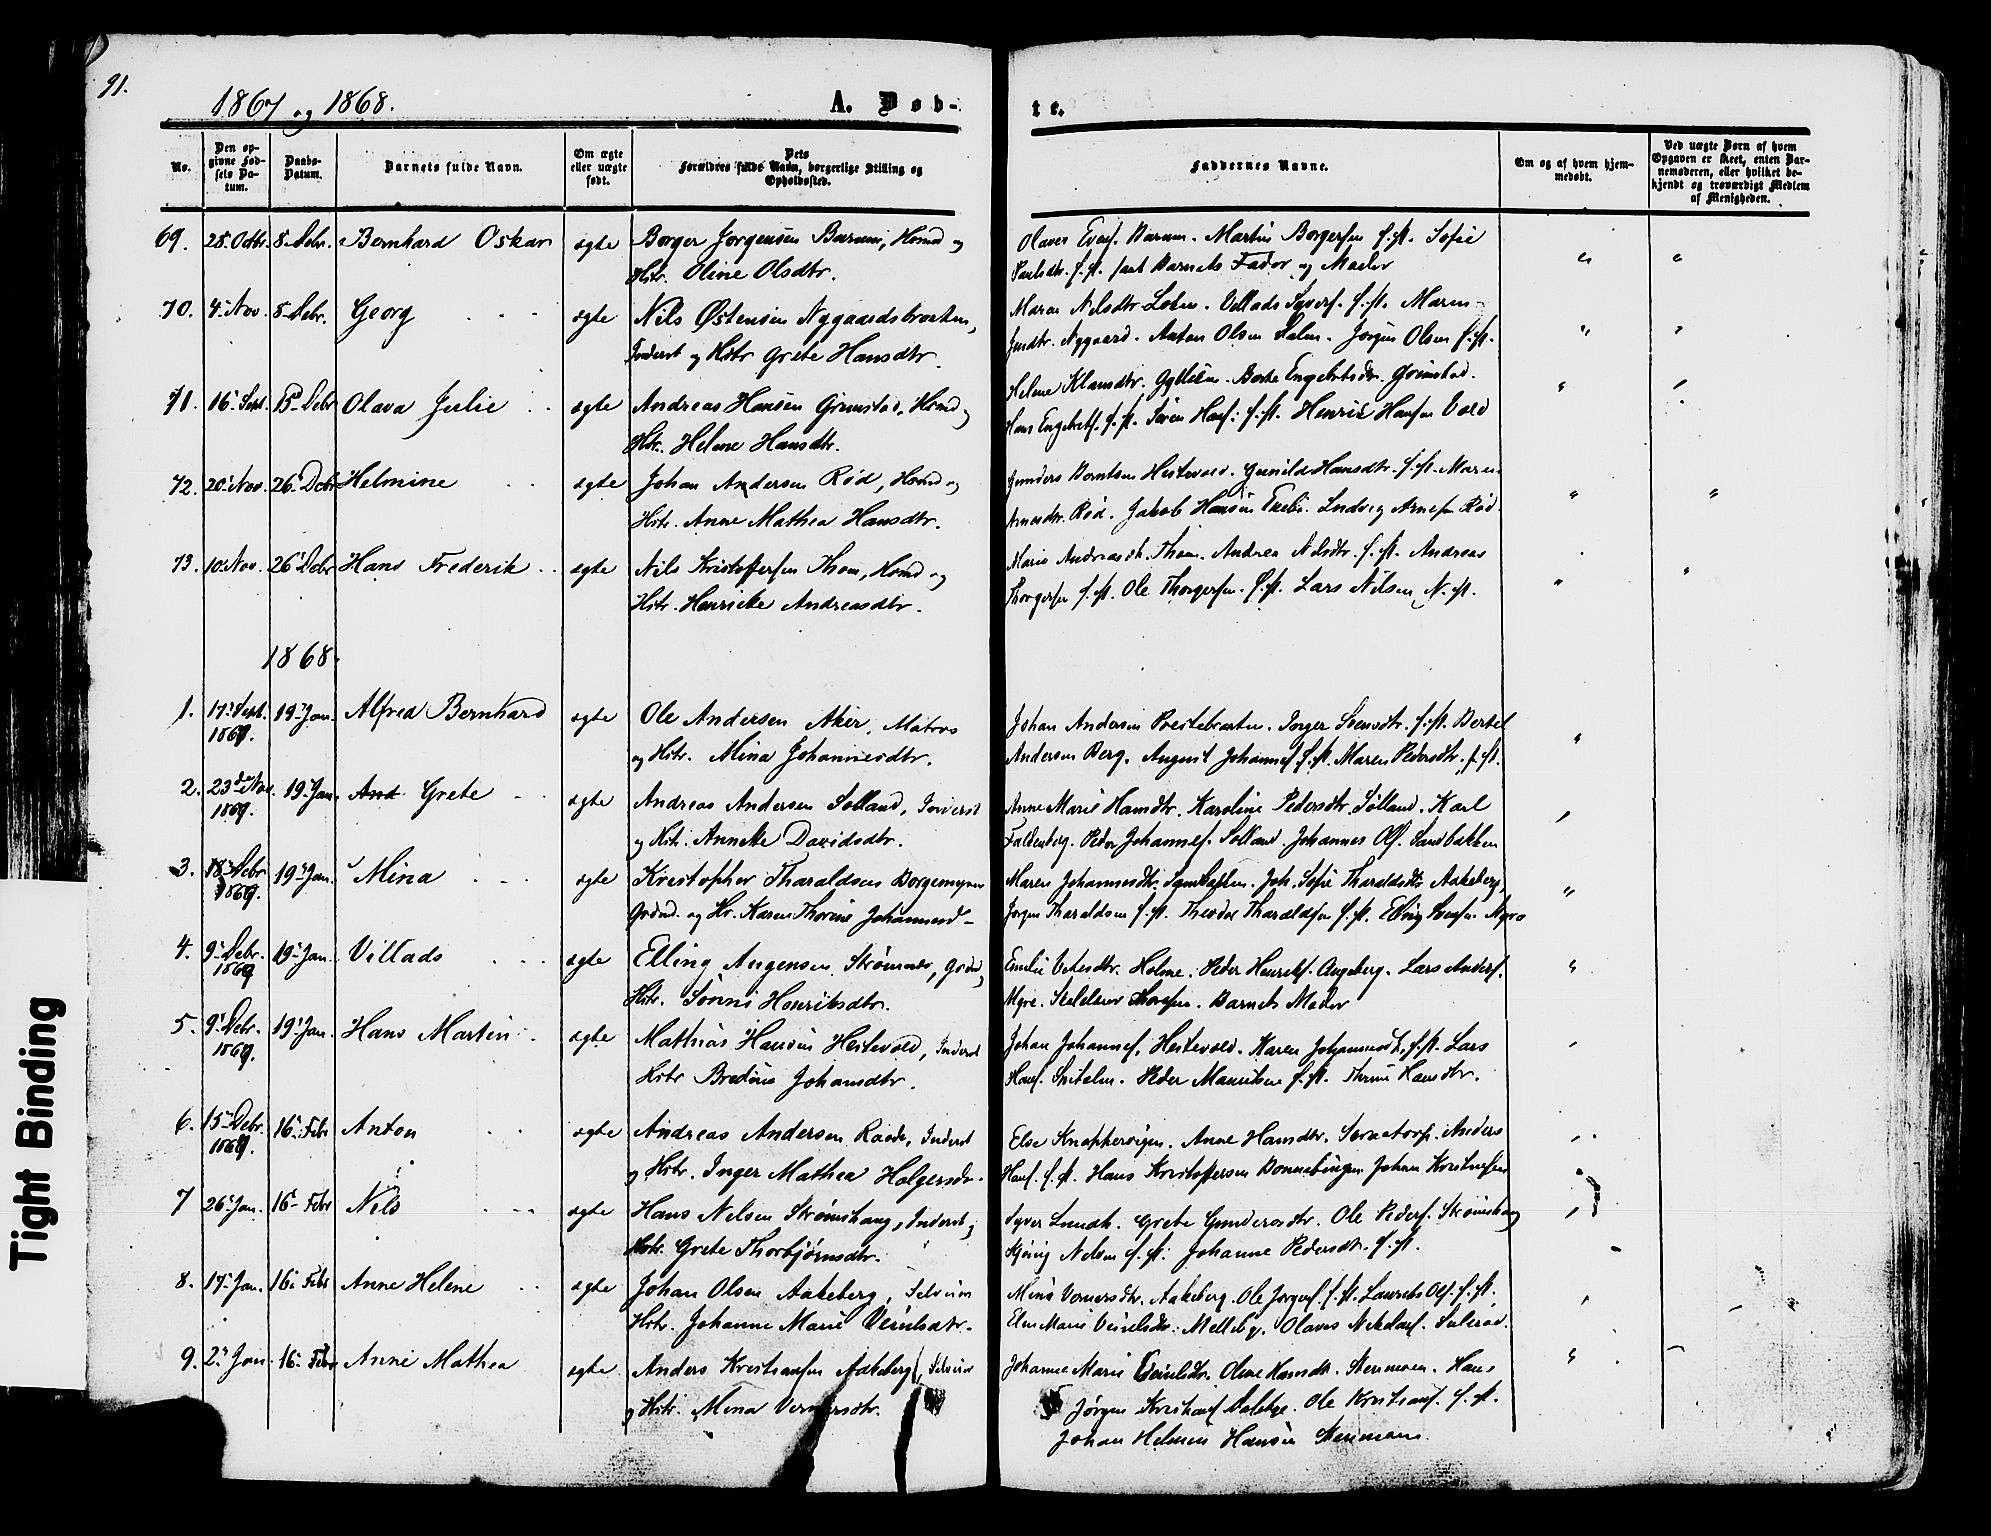 91.
1867 og 1868.
A. Døb-
te.
No.
Den opgivne Fødsels Datum.
Daabs-Datum.
Barnets fulde Navn.
Om ægte eller uægte født.
Dets Forældres fulde Navn, borgerlige Stilling og Opholdssted.
Faddernes Navne.
Om og af hvem hjemmedøbt.
Ved uægte Børn af hvem Opgaven er skeet, enten Barnemoderen, eller hvilket bekjendt og troværdigt Medlem af Menigheden.
69. 28. Octbr. 8. Debr. Bernhard Oskar ægte Borger Jørgensen Barum, Hsmd og
Hstr. Oline Olsdtr.
Olaves Evens. Barum. Martin Borgersen s. st. Sofie
Paulsdtr. s. st. samt Barnets Fader og Moder
70. 4. Nov. 8. Debr. Georg ægte Nils Østensen Nygaardsbraaten,
Inderst og Hstr Grete Hansdtr.
Maren Nilsdtr Løken. Villads Syvers. s. st. Maren
Jensdtr. Nygaard. Anton Olsen Holm. Jørgen Olsen s. st.
71. 16. Sept. 15. Debr Olava Julie ægte Andreas Hansen Grimstad, Hsmd og
Hstr. Helene Hansdtr.
Helene Klausdtr. Berthe Engebretsdtr. Grimstad.
Hans Engebrets. s. st. Søren Hans. s. st. Henrik Hansen Vold
72. 20. Nov. 26. Debr Helmine ægte Johan Andersen Rød, Hsmd og
Hstr. Anne Mathea Hansdtr.
Gunders Berntsen Hestevold. Gunild Hansdtr. s. st. Maren
Arnesdtr. Rød. Jakob Hansen Ludvig Arnesen Rød.
73. 10. Nov. 26. Debr Hans Frederik ægte Nils Kristoffersen Thom, Hsmd og
Hstr. Henrikke Andreasdtr.
Marie Andreasdtr. Thom. Andrea Nilsdtr. s. st. Andreas
Thorgersen s. st. Ole Thorgersen. s. st. Lars Nilsen N. st.
1868.
1. 17. Sept. 1867. 19. Jan. Alfred Bernhard ægte Ole Andersen Aker, Matros
og Hstr. Mina Johannesdtr.
Johan Andersen Præstebraaten. Inger Svensdtr. s. st. Bertel
Andersen Berg. August Johannes. s. st. Maren Pedersdtr. s. st.
2. 23de Nov. 1867. 19. Jan. Grete ægte Andreas Andersen Solland, Inderst
og Hstr. Annette Davidsdtr.
Anne Marie Hansdtr. Karoline Pedersdtr. Solland. Karl
Falkenberg. Peder Johannes. Solland. Johannes Ols. Sandbakken
3. 18. Debr 1867. 19. Jan. Mina ægte Kristopher Tharaldsen Borgemyren
Grdmd. og Hr. Karen Thorine Johannesd-
Maren Johannesdtr. Joh. Sofie Tharaldsdtr Aakeberg,
Jørgen Tharaldsen s. st. Theodor Tharaldsen s. st. Elling Svensen Myra
4. 9. Debr. 1867 19. Jan. Villads ægte Elling Jørgensen Strømnes, Grdmd,
Hstr. Sørine Henriksdtr.
Emilie Holme. Peder Henriks. Augeberg. Lars Anders.
Myre. Thoresen. Barnets Moder
5. 9. Debr. 1867. 19. Jan. Hans Martin ægte Mathias Hansen Hestevold, Inderst
Hstr Bredine Johansdtr.
Johan Johannes. Hestevold. Karen Johannesdtr. s. st. Lars
Hans. Spitalen. Peder Mauritsen s. st. Thrine Hansdtr.
6. 15. Debr. 1867. 16. Febr Anton ægte Andreas Andersen Raade, Inderst
og Hstr. Inger Mathea Holgersdr.
Else Knapperoigen. Anne Hansdtr. Anders
Hans. s. st. Hans Kristoffersen Johan Kristiansen
7 26. Jan. 16. Febr Nils ægte Hans Nelsen Strømshaug, Inderst,
Hstr. Grete Thorbjørnsdtr.
Syver Lundt. Grete Gundersdtr. Ole Peders. Strømshaug
Kjøstig Nelsen s. st. Johanne Pedersdtr. s. st.
8. 17. Jan. 16. Febr Anne Helene ægte Johan Olsen Aakeberg, Selveier
Hstr. Johanne Marie
Mina Vernersdtr. Aakeberg. Ole Jørgens. s. st. Laurits Ols. s. st.
Elen Marie Melleby. Olaves Nikolais.
9. 2. Jan 16. Febr Anne Mathea ægte Anders Kristiansen Aakeberg, Selveier
og Hstr. Mina Vernersdtr.
Johanne Marie Oline Hansdtr. Stenmoen. Hans
Jørgen Kristians. Ole Kristians. s. st.
Johan Helmen Hansen Stenmoen
Tight Binding